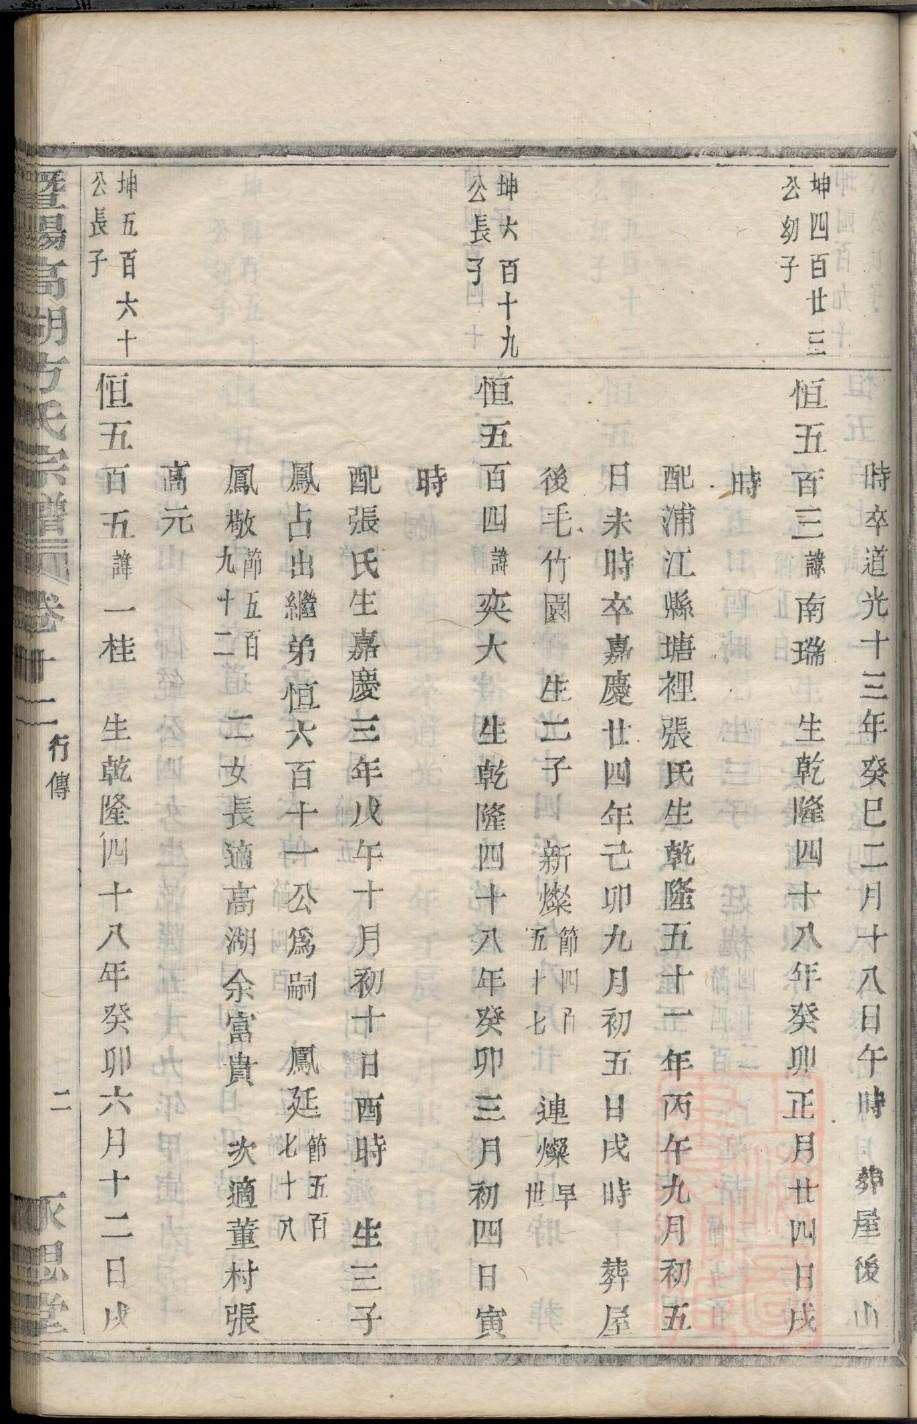 時卒道光十三年癸巳二月十八日午時 葬屋後山
坤四百廿三
公幼子
恒五百三諱南瑞 生乾隆四十八年癸卯正月廿四日戌
時
配浦江縣塘裡張氏生乾隆五十一年丙午九月初五
日未時卒嘉慶廿四年己卯九月初五日戌時 葬屋
後毛竹園 生二子 新燦節四百五十七 連燦早世
坤六百十九
公長子
恒五百四諱奕大 生乾隆四十八年癸卯三月初四日寅
時
配張氏生嘉慶三年戊午十月初十日酉時 生三子
鳳占出繼弟恒六百十一公爲嗣 鳳廷節五百七十八
鳳樹節五百九十二 二女長適高湖余富貴 次適董村張
高元
坤五百六十
公長子
恒五百五諱一桂 生乾隆四十八年癸卯六月十二日戌
暨陽高湖方氏宗譜 卷十二 行傳 二 永思堂